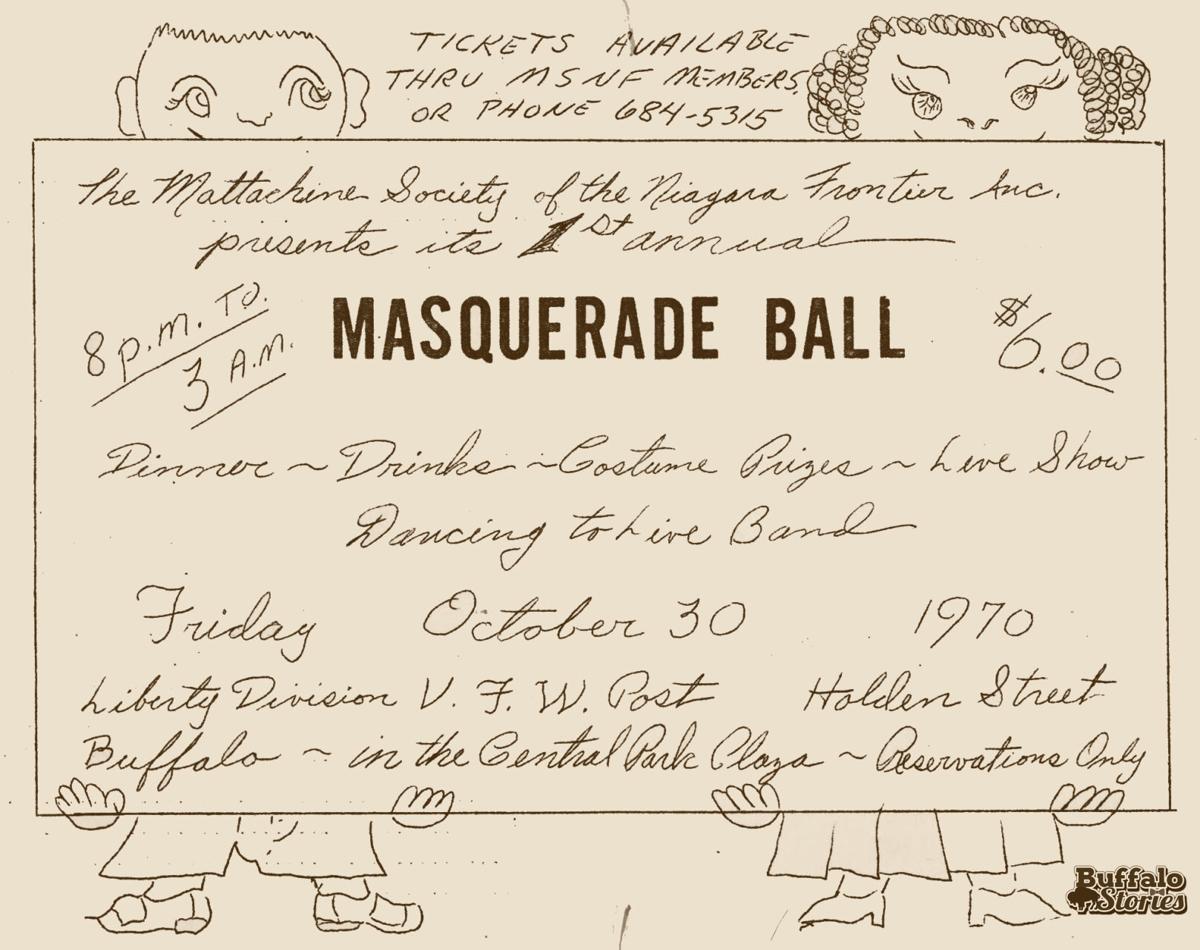 TICKETS AVAILABLE
THRU MSNF MEMBERS,
OR PHONE 684-5315
The Mattachine Society of the Niagara Frontier Inc.
presents its 1st annual
8 p.m. TO.
3 A.M.
MASQUERADE BALL
$6.00
Dinner ~ Drinks ~ Costume Prizes ~ Live Show
Dancing to Live Band
Friday October 30 1970
Liberty Division V. F. W. Post Holden Street
Buffalo ~ in the Central Park Plaza ~ Reservations Only
Buffalo
Stories